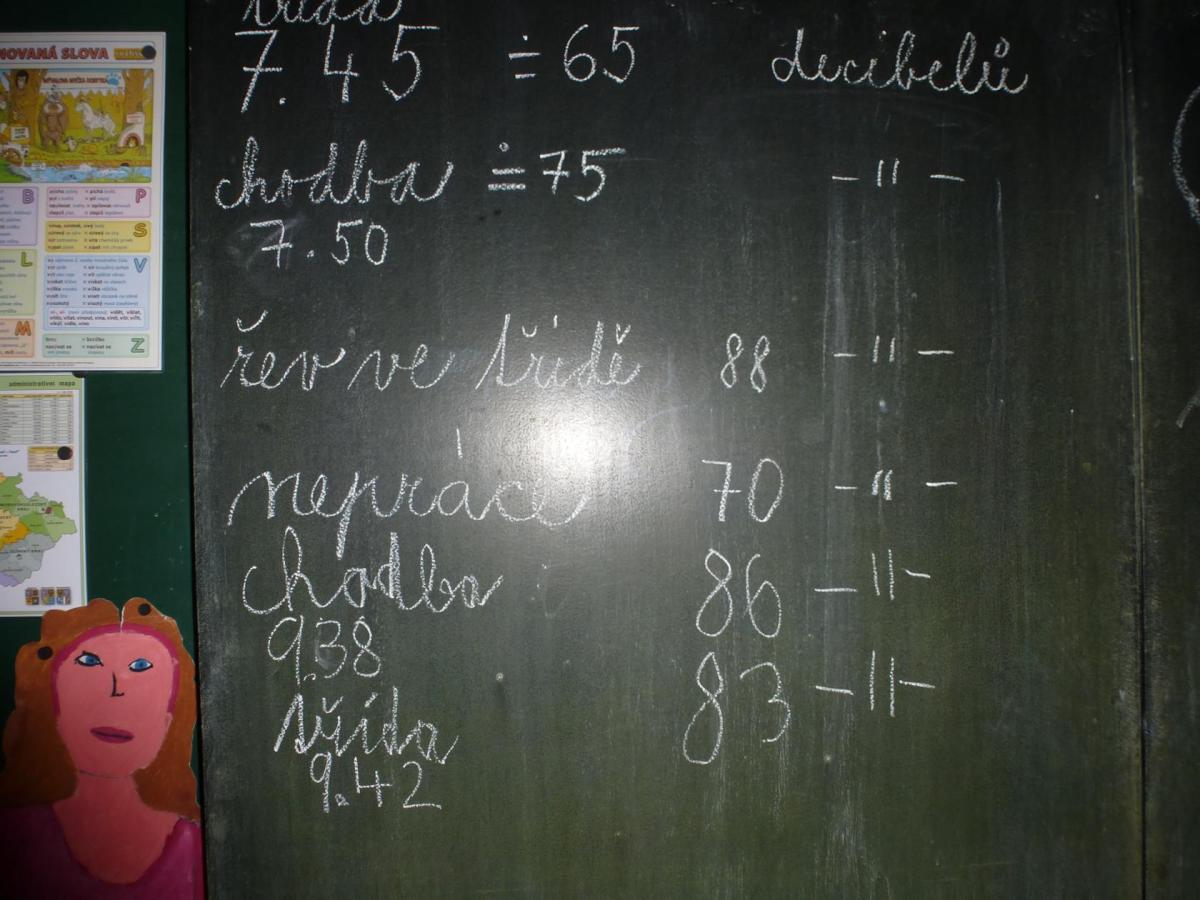 třída
7.45 ≐ 65 decibelů
chodba ≐ 75 – 〃 –
7.50
řev ve třídě 88 – 〃 –
nepráce 70 – 〃 –
chodba 86 – 〃 –
9.38
třída 83 – 〃 –
9.42
NOVANÁ SLOVA
B
P
S
L
V
M
Z
administrativní mapa